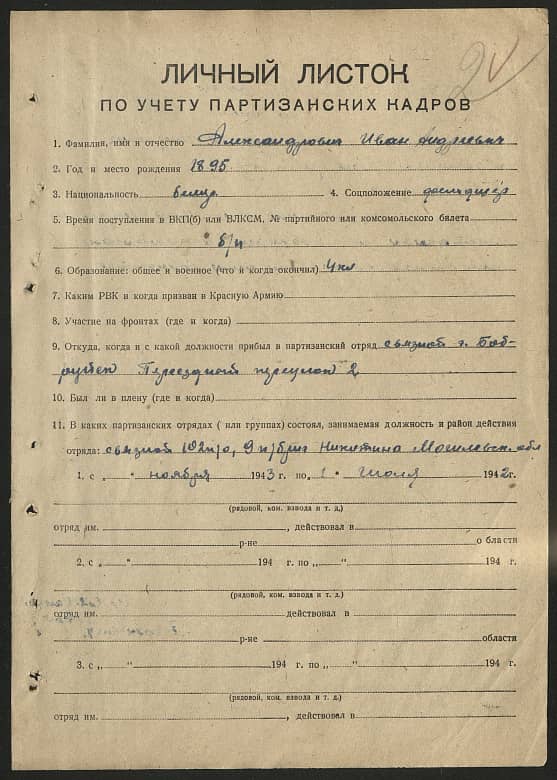 ЛИЧНЫЙ ЛИСТОК
ПО УЧЕТУ ПАРТИЗАНСКИХ КАДРОВ
1. Фамилия, имя и отчество Александрович Иван Андреевич
2. Год и место рождения 1895
3. Национальность белор. 4. Соцположение
5. Время поступления в ВКП(б) или ВЛКСМ, № партийного или комсомольского билета
б/п
6. Образование: общее и военное (что и когда окончил) 4 кл
7. Каким РВК и когда призван в Красную Армию
8. Участие на фронтах (где и когда)
9. Откуда, когда и с какой должности прибыл в партизанский отряд связной г. Боб-
руйск переулок 2
10. Был ли в плену (где и когда)
11. В каких партизанских отрядах ( или группах) состоял, занимаемая должность и район действия
отряда: связной 102 п/о, 9 п/бриг Никитина Могилевск. обл
1. с „ " ноября 1943 г. по „ 1 " июля 1942 г.
(рядовой, ком. взвода и т. д.)
отряд им. , действовал в
р-не о бласти
2. с „ " 194 г. по „ " 194 г.
(рядовой, ком. взвода и т. д.)
отряд им. действовал в
р-не области
3. с „ " 194 г. по „ " 194 г.
(рядовой, ком. взвода и т. д.)
отряд им. , действовал в